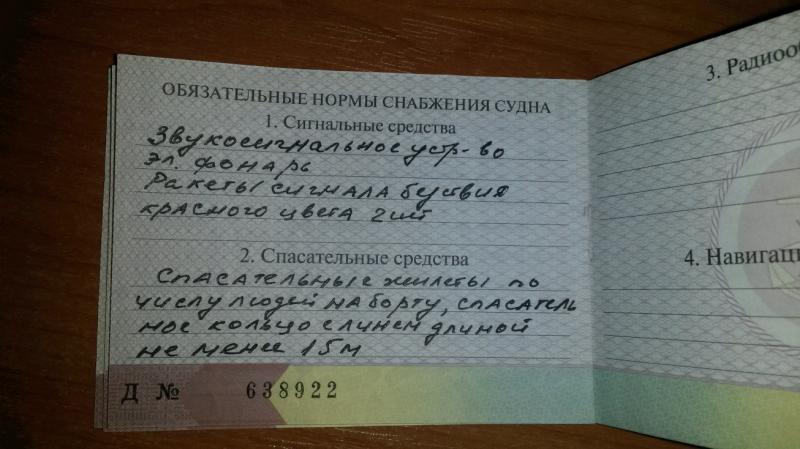 ОБЯЗАТЕЛЬНЫЕ НОРМЫ СНАБЖЕНИЯ СУДНА
1. Сигнальные средства
Звукосигнальное устр-во
эл. фонарь
Ракеты сигнала бедствия
красного цвета 2шт
2. Спасательные средства
Спасательные жилеты по
числу людей на борту, спасатель
ное кольцо с линем длиной
не менее 15м
Д № 638922
3. Радиооб
4. Навигаци